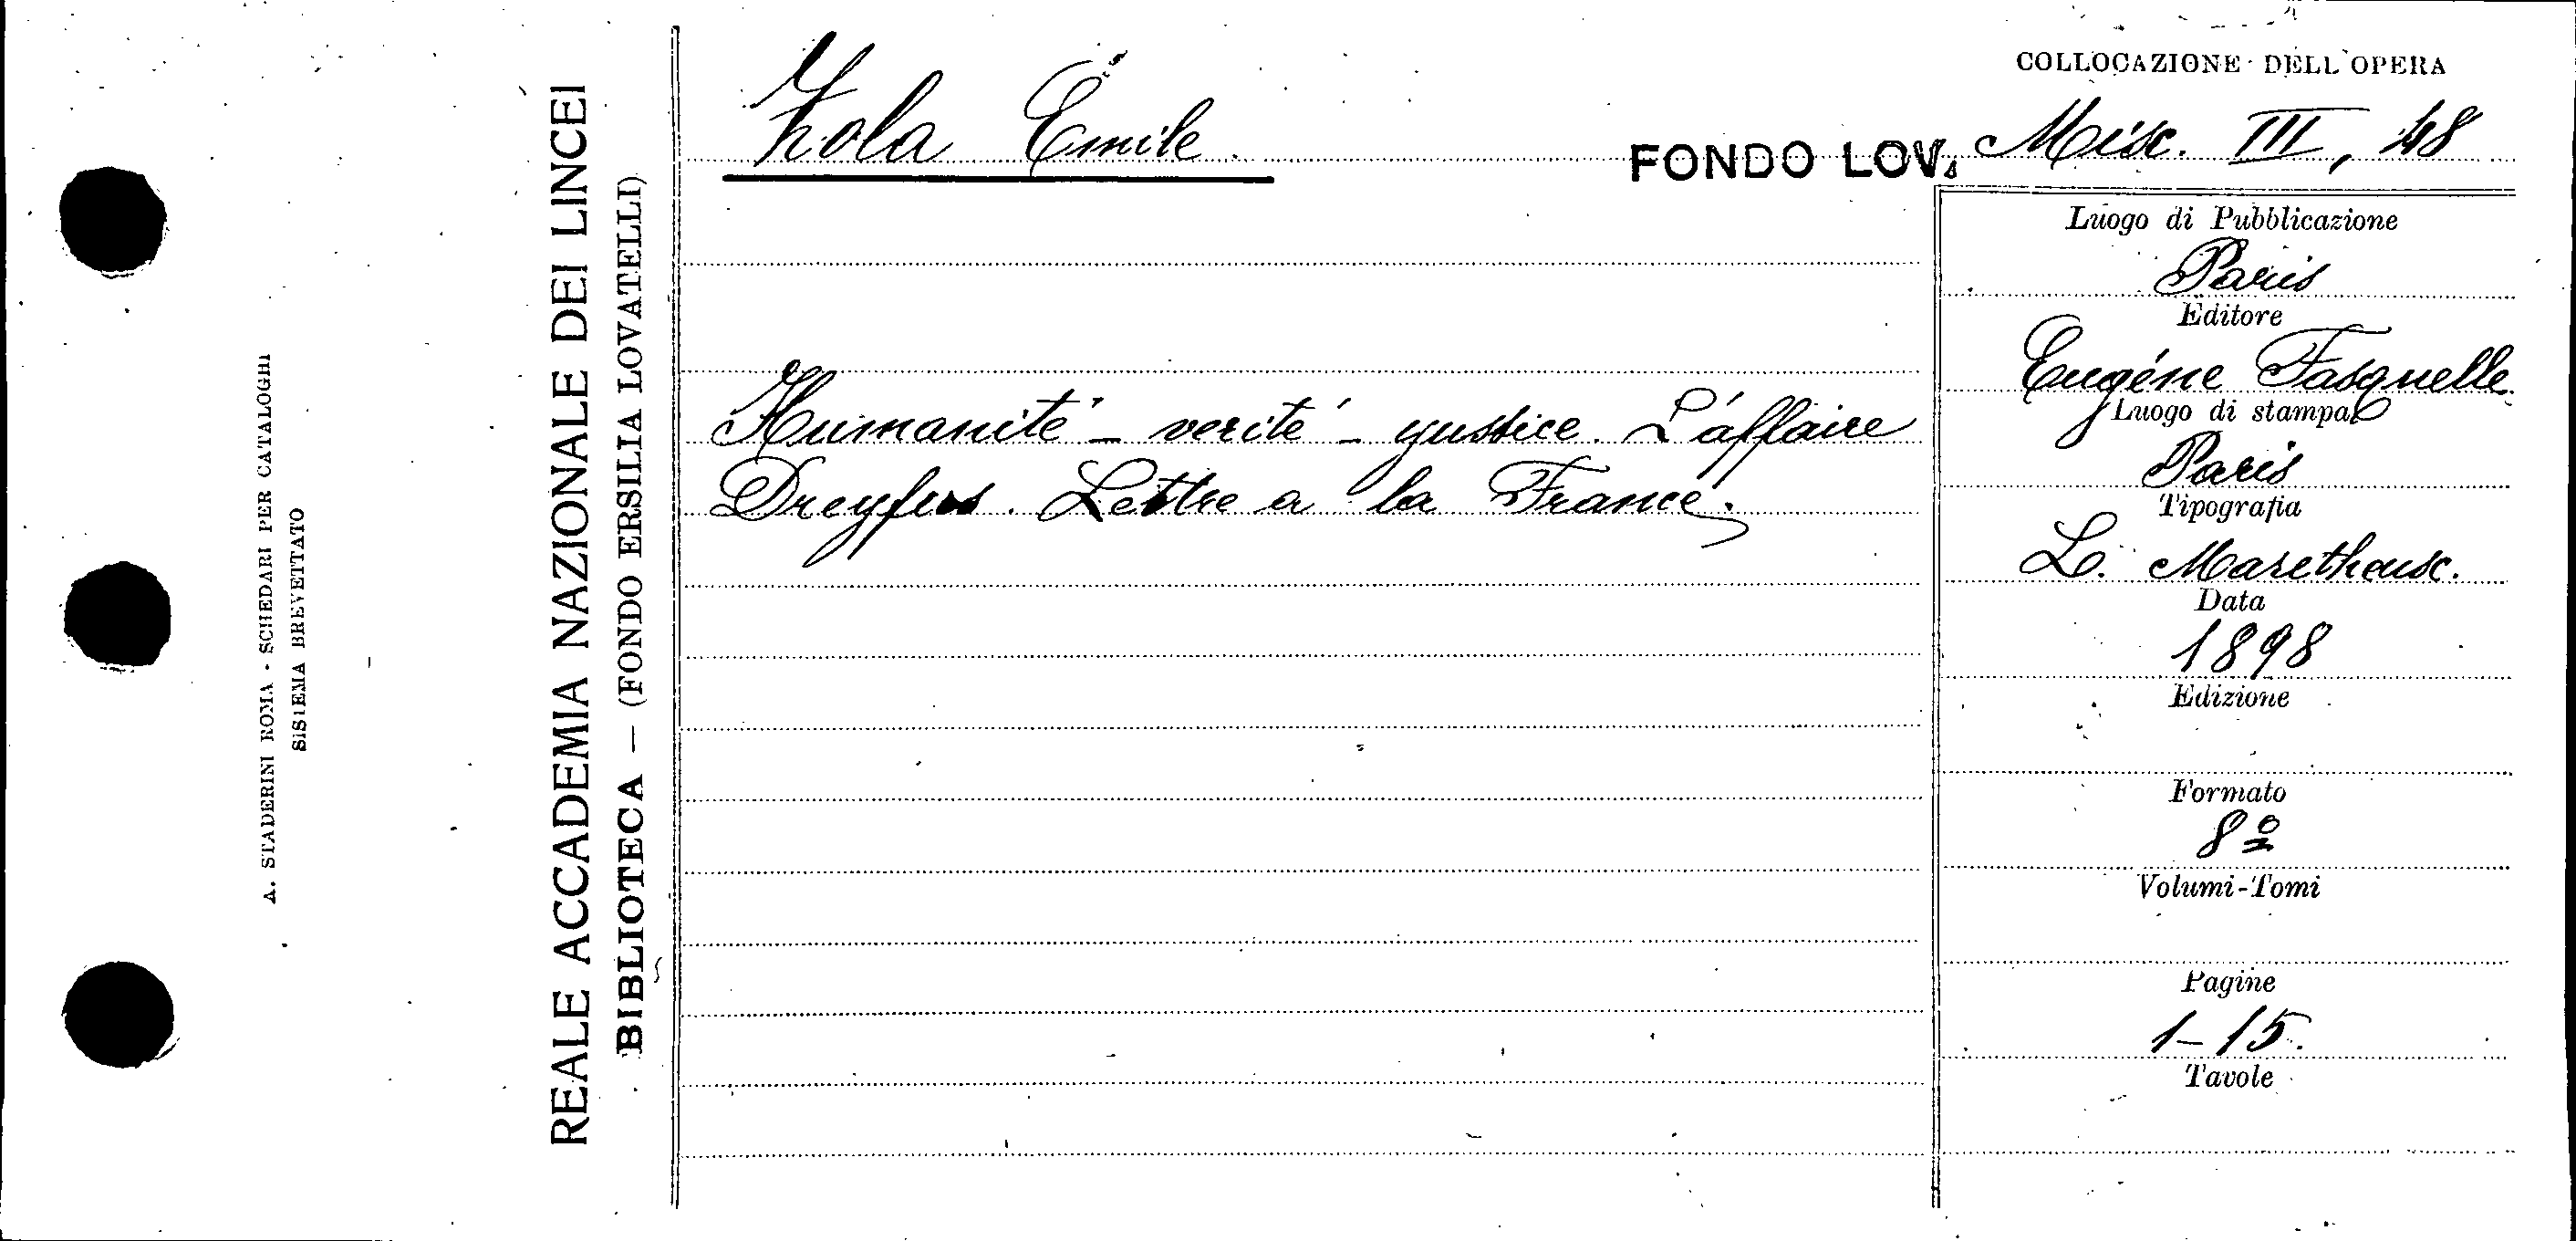 A. STADERINI ROMA - SCHEDARI PER CATALOGHI
SISTEMA BREVETTATO
REALE ACCADEMIA NAZIONALE DEI LINCEI
BIBLIOTECA — (FONDO ERSILIA LOVATELLI)
Zola Émile.
Humanité - verité - justice. L'affaire
Dreyfus. Lettre a la France.
COLLOCAZIONE DELL'OPERA
FONDO LOV. Misc. III, 48
Luogo di Pubblicazione
Paris
Editore
Eugéne Fasquelle
Luogo di stampa
Paris
Tipografia
L. Maretheusc.
Data
1898
Edizione
Formato
8º
Volumi-Tomi
Pagine
1-15.
Tavole